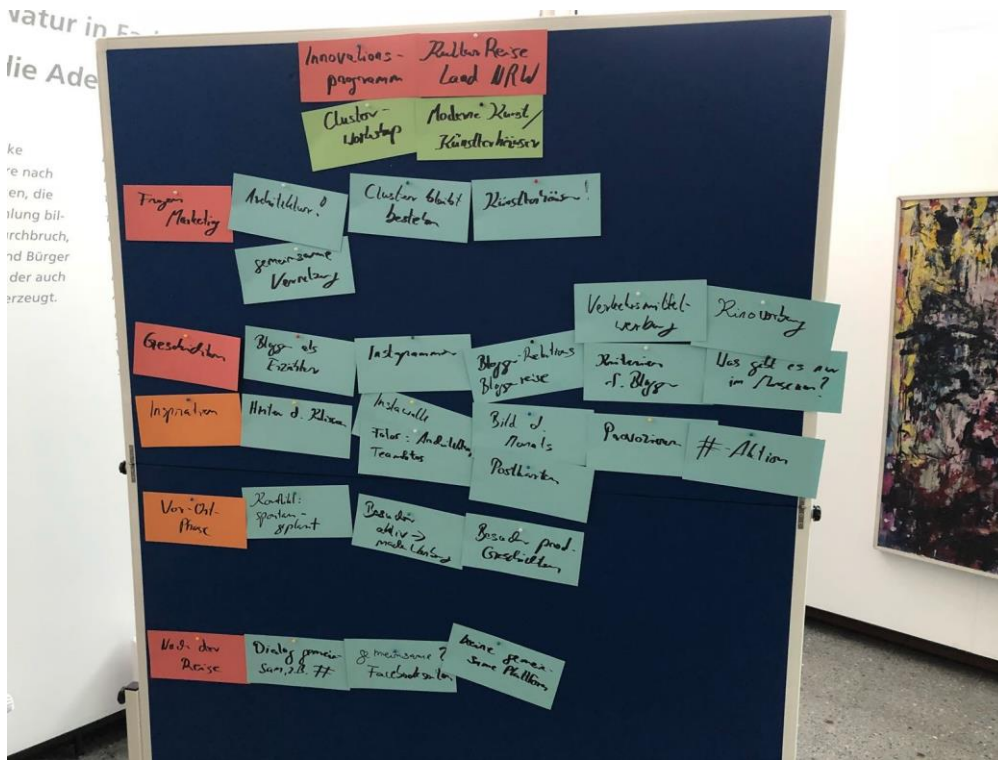 Natur in
die Ade
ke
re nach
en, die
nlung bil-
urchbruch,
nd Bürger
der auch
erzeugt.
Innovations-
programm
Kultur Reise
Land NRW
Cluster-
Workshop
Moderne Kunst/
Künstlerhäuser
Fragen
Marketing
Architektur?
Cluster bleibt
bestehen
Künstlerhäuser!
gemeinsame
Verkehrsmittel-
werbung
Kinowerbung
Geschichten
Blogger als
Erzähler
Instagrammer
Blogger-Relations
Bloggerreise
Kriterien
f. Blogger
Was gibt es nur
im Museum?
Inspiration
Hinter d. Kulissen
Instawalk
Fotos: Architektur,
Teamfotos
Bild d.
Monats
Postkarten
Provozieren
#-Aktion
Vor-Ort-
Phase
Konflikt:
spontan-
geplant
Besucher
aktiv →
macht Werbung
Besucher prod.
Geschichten
Nach der
Reise
Dialog gemein-
sam, z.B. #
gemeinsame?
Facebookseiten
keine gemein-
same Plattform